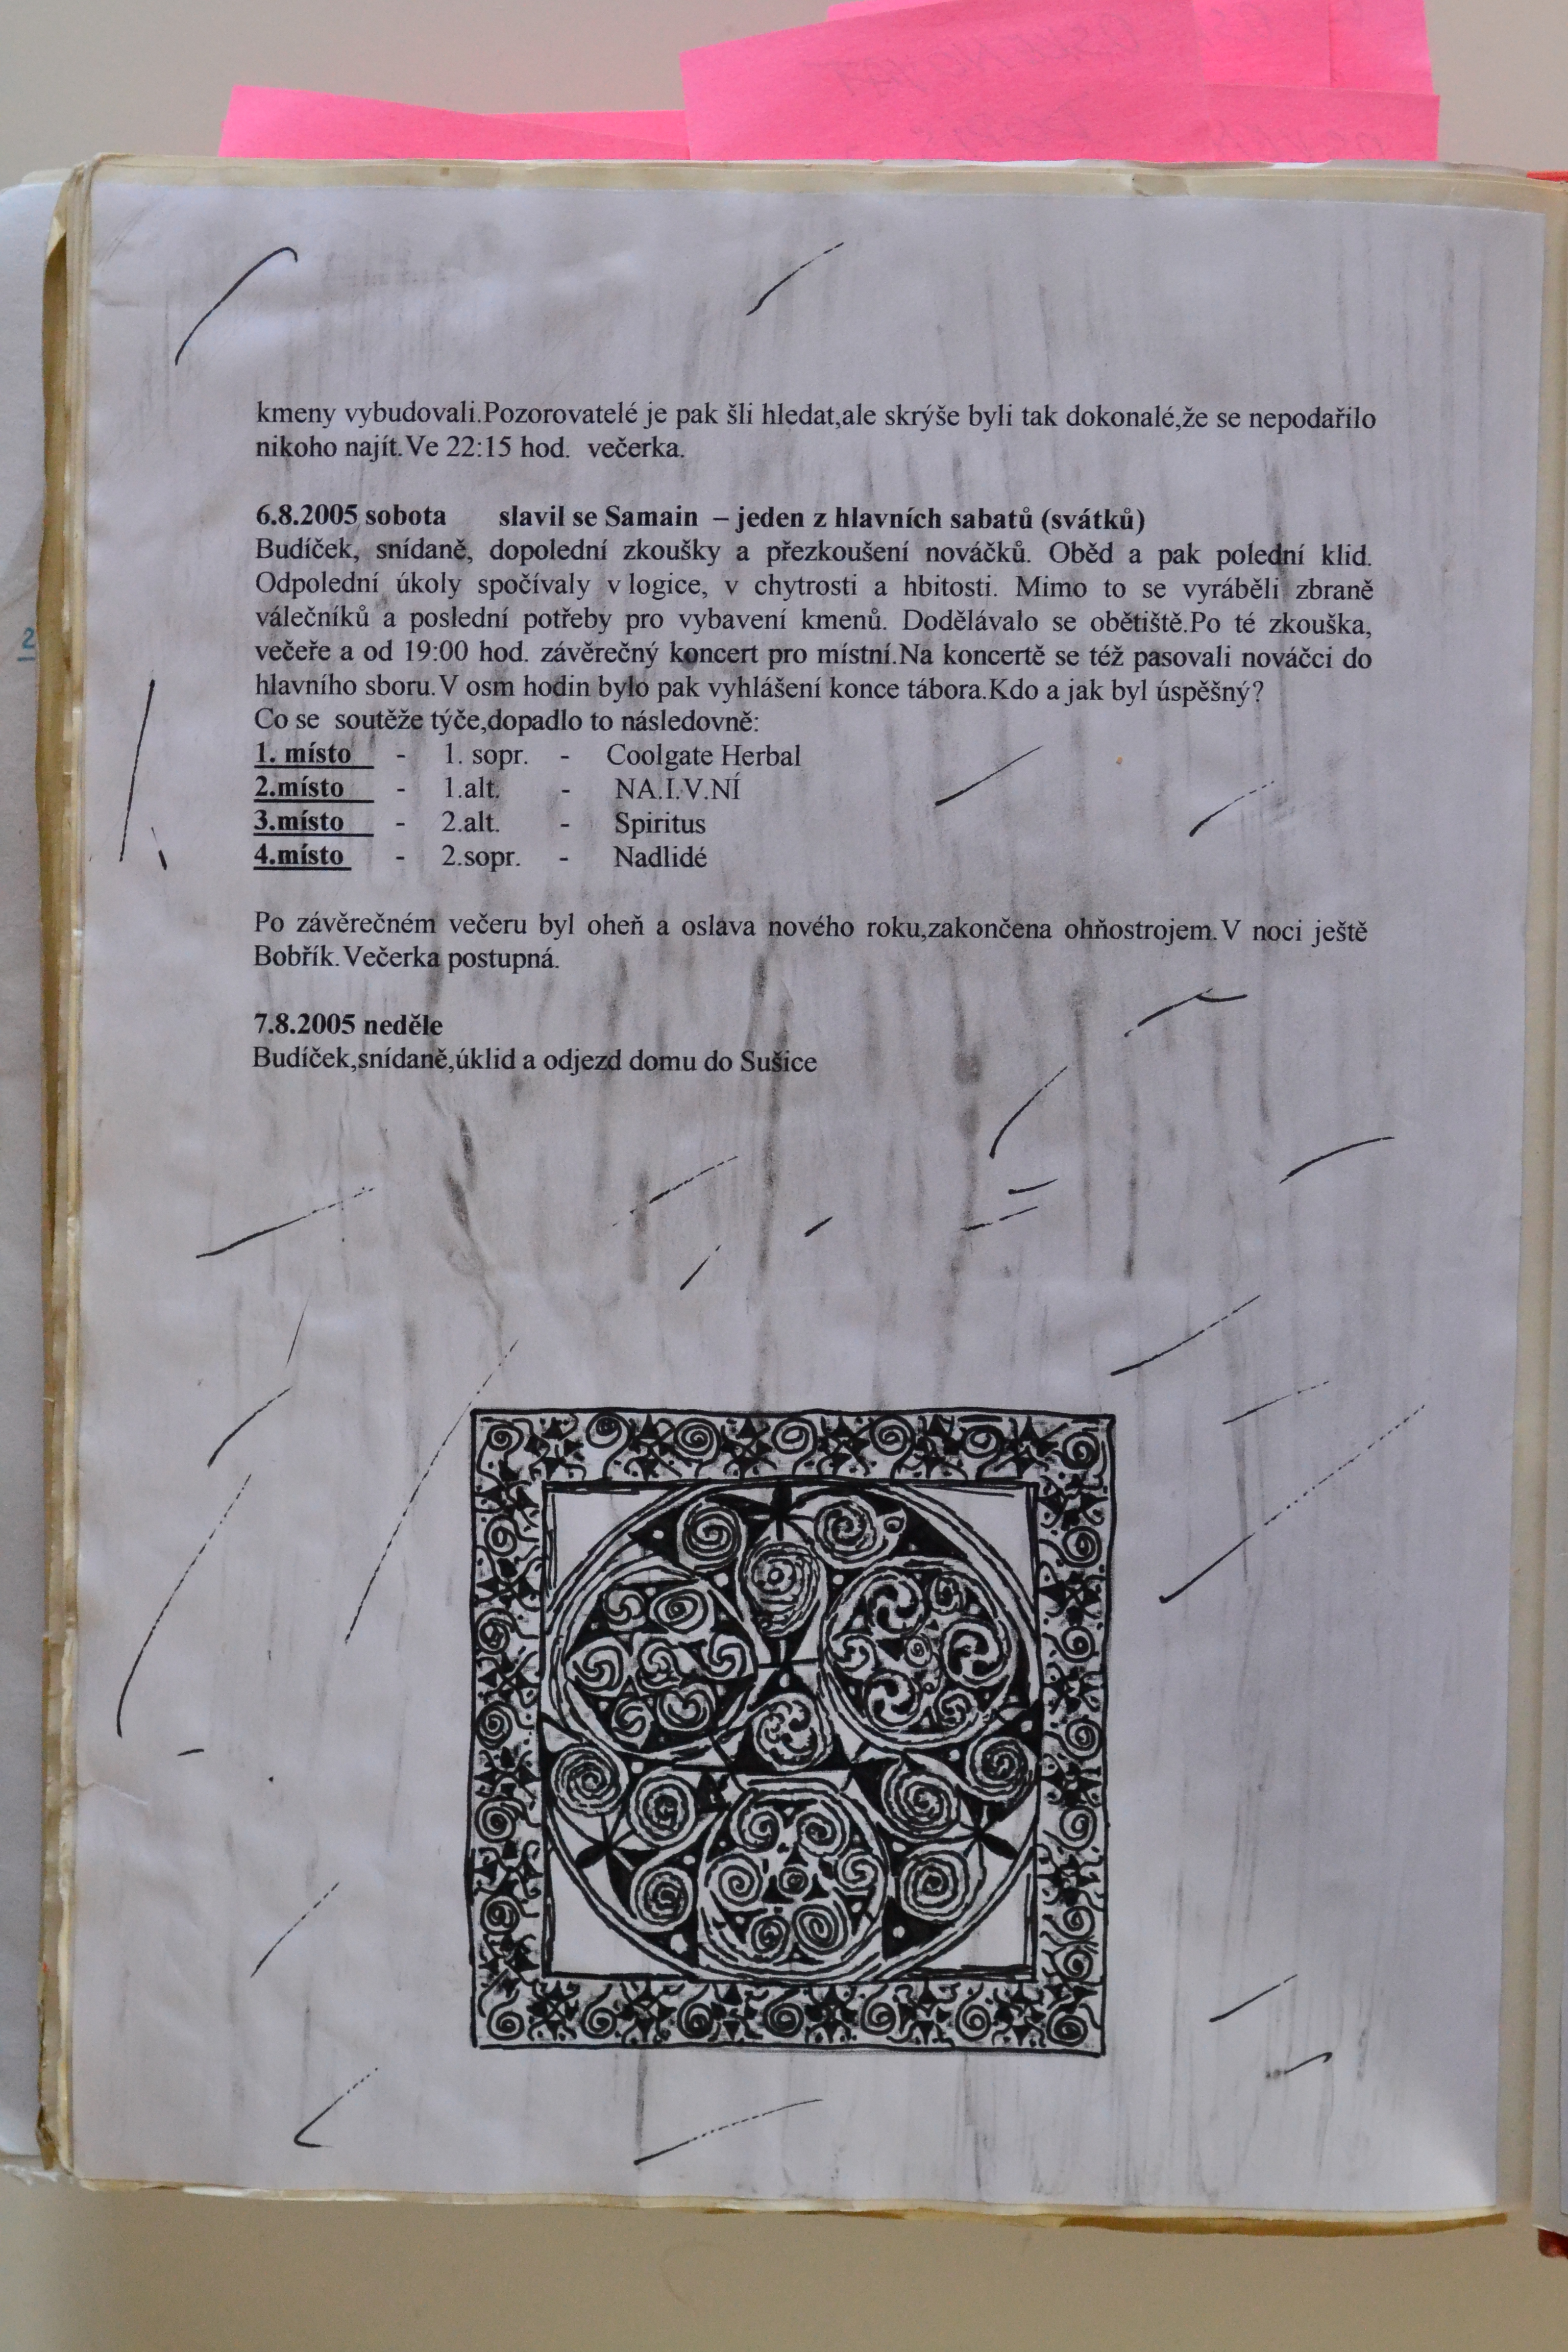 kmeny vybudovali.Pozorovatelé je pak šli hledat,ale skrýše byli tak dokonalé,že se nepodařilo
nikoho najít.Ve 22:15 hod. večerka.
6.8.2005 sobota slavil se Samain – jeden z hlavních sabatů (svátků)
Budíček, snídaně, dopolední zkoušky a přezkoušení nováčků. Oběd a pak polední klid.
Odpolední úkoly spočívaly v logice, v chytrosti a hbitosti. Mimo to se vyráběli zbraně
válečníků a poslední potřeby pro vybavení kmenů. Dodělávalo se obětiště.Po té zkouška,
večeře a od 19:00 hod. závěrečný koncert pro místní.Na koncertě se též pasovali nováčci do
hlavního sboru.V osm hodin bylo pak vyhlášení konce tábora.Kdo a jak byl úspěšný?
Co se soutěže týče,dopadlo to následovně:
1. místo - 1. sopr. - Coolgate Herbal
2.místo - 1.alt. - NA.I.V.NÍ
3.místo - 2.alt. - Spiritus
4.místo - 2.sopr. - Nadlidé
Po závěrečném večeru byl oheň a oslava nového roku,zakončena ohňostrojem.V noci ještě
Bobřík.Večerka postupná.
7.8.2005 neděle
Budíček,snídaně,úklid a odjezd domu do Sušice
2